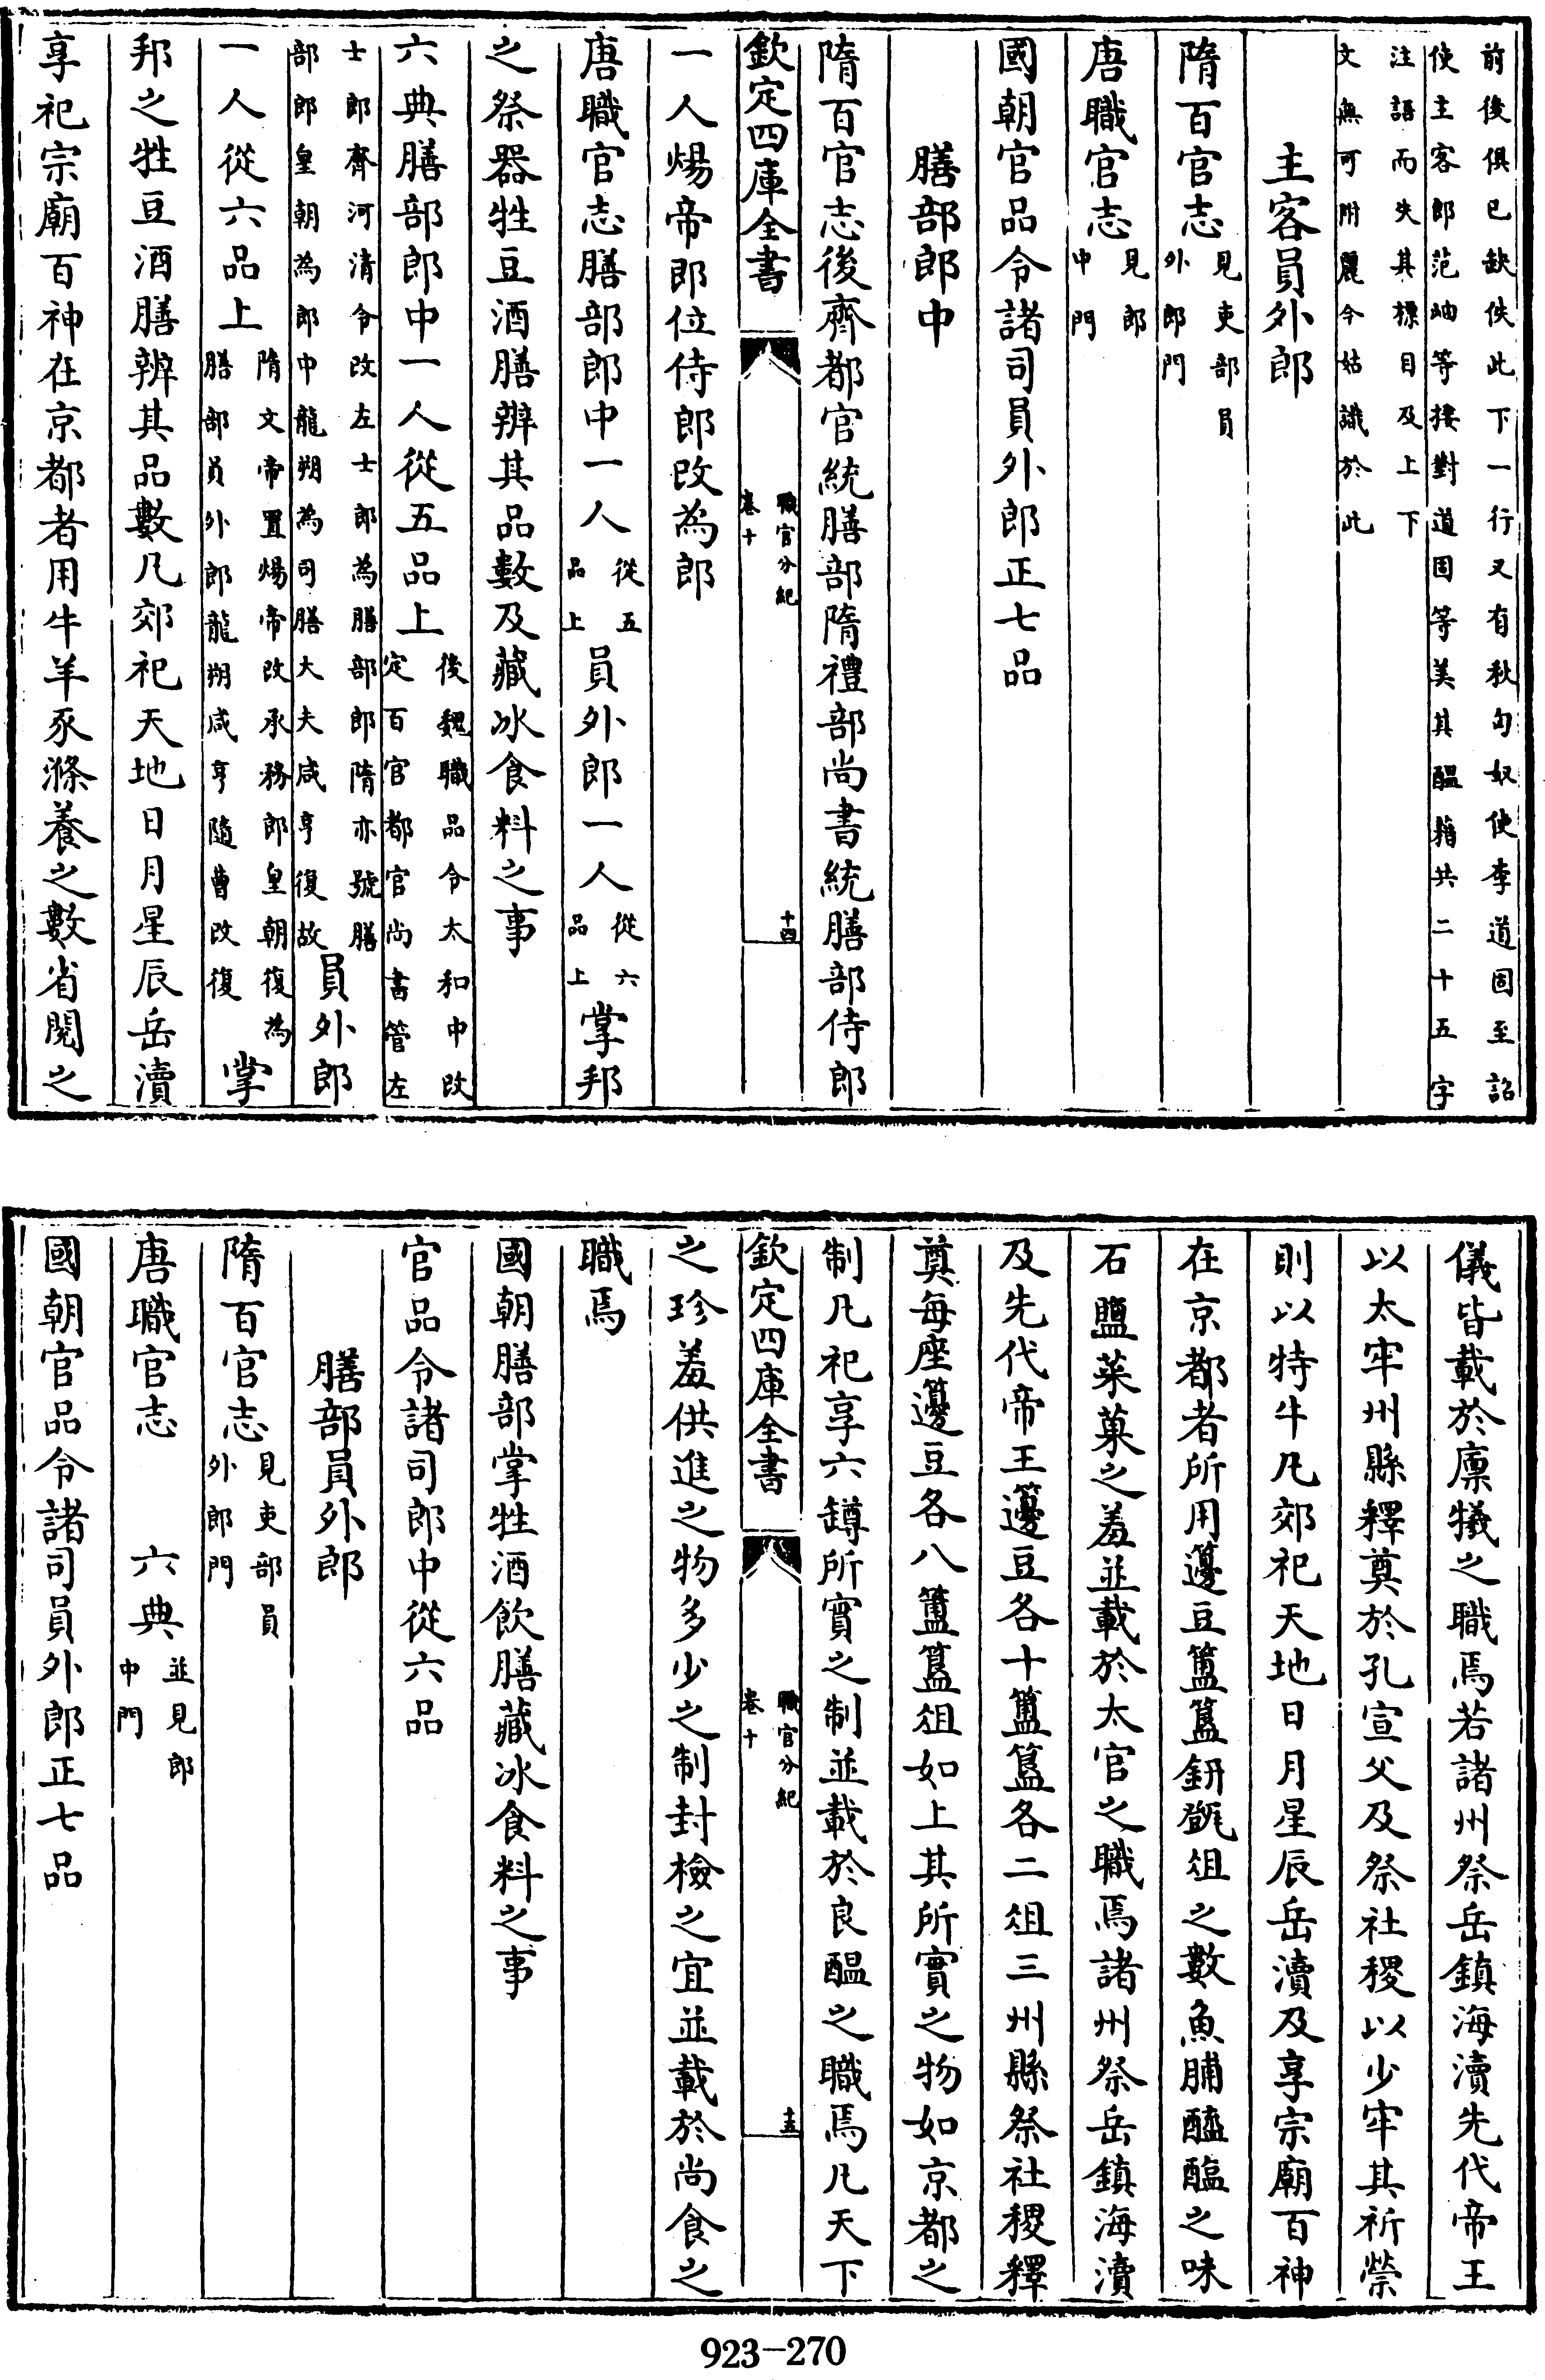 前後俱已缺佚此下一行又有秋匈奴使李道固至詔
使主客郎范岫等接對道固等美其醞籍共二十五字
注語而失其標目及上下
文無可附麗今姑識於此
主客員外郎
隋百官志見吏部員外郎門
唐職官志見郎中門
國朝官品令諸司員外郎正七品
膳部郎中
隋百官志後齊都官統膳部隋禮部尚書統膳部侍郎
欽定四庫全書 職官分紀 卷十 十四
一人煬帝即位侍郎改為郎
唐職官志膳部郎中一人從五品上員外郎一人從六品上掌邦
之祭器牲豆酒膳辨其品數及藏冰食料之事
六典膳部郎中一人從五品上後魏職品令太和中改定百官都官尚書管左
士郎齊河清令改左士郎為膳部郎隋亦號膳部郎皇朝為郎中龍朔為司膳大夫咸亨復故員外郎
一人從六品上隋文帝置煬帝改承務郎皇朝復為膳部員外郎龍朔咸亨隨曹改復掌
邦之牲豆酒膳辨其品數凡郊祀天地日月星辰岳瀆
享祀宗廟百神在京都者用牛羊豕滌養之數省閱之
儀皆載於廩犧之職焉若諸州祭岳鎮海瀆先代帝王
以太牢州縣釋奠於孔宣父及祭社稷以少牢其祈禜
則以特牛凡郊祀天地日月星辰岳瀆及享宗廟百神
在京都者所用籩豆簠簋鈃㽅俎之數魚脯醯醢之味
石鹽菜菓之羞並載於太官之職焉諸州祭岳鎮海瀆
及先代帝王籩豆各十簠簋各二俎三州縣祭社稷釋
奠每座籩豆各八簠簋俎如上其所實之物如京都之
制凡祀享六罇所實之制並載於良醞之職焉凡天下
欽定四庫全書 職官分紀 卷十 十五
之珍羞供進之物多少之制封檢之宜並載於尚食之
職焉
國朝膳部掌牲酒飲膳藏冰食料之事
官品令諸司郎中從六品
膳部員外郎
隋百官志見吏部員外郎門
唐職官志 六典並見郎中門
國朝官品令諸司員外郎正七品
923-270